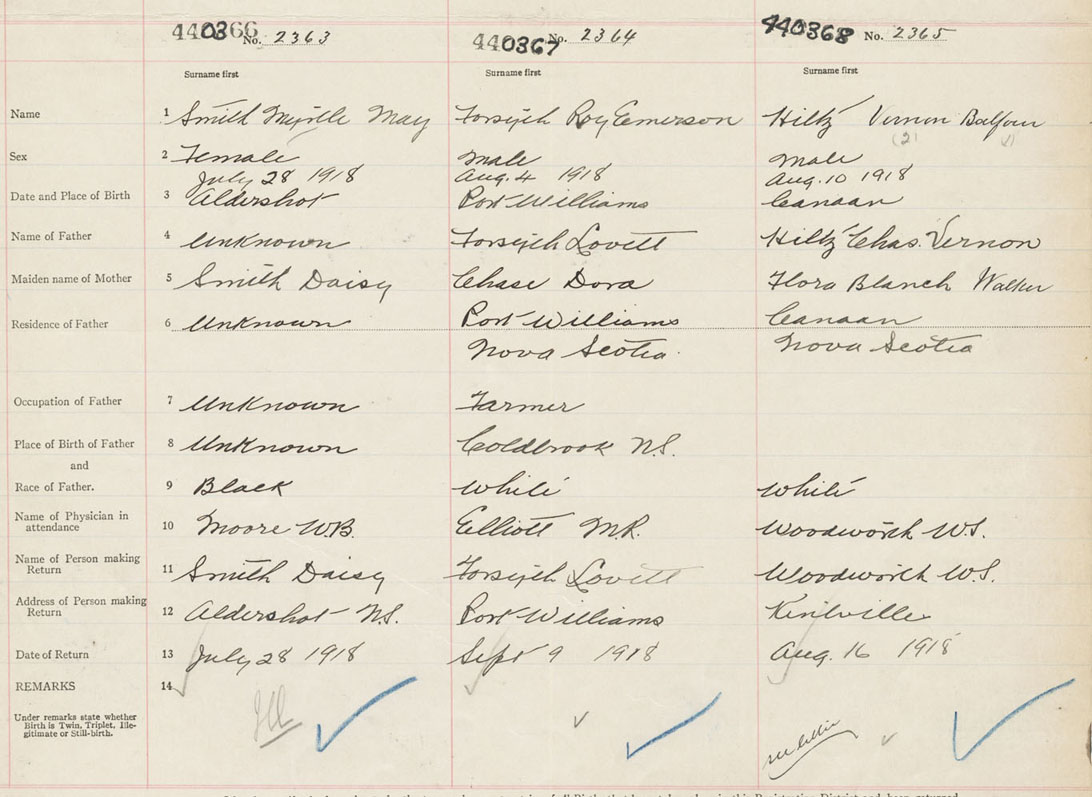 440366 No. 2363 440367 No. 2364 440368 No. 2365
Surname first Surname first Surname first
Name 1 Smith Myrtle May Forsyth Roy Emerson Hiltz Vernon Balfour
(2)
Sex 2 Female Male Male
July 28 1918 Aug. 4 1918 Aug. 10 1918
Date and Place of Birth 3 Aldershot Port Williams Canaan
Name of Father 4 Unknown Forsyth Lovett Hiltz Chas. Vernon
Maiden name of Mother 5 Smith Daisy Chase Dora Flora Blanch Walker
Residence of Father 6 Unknown Port Williams Canaan
Nova Scotia. Nova Scotia
Occupation of Father 7 Unknown Farmer
Place of Birth of Father 8 Unknown Coldbrook N.S.
and
Race of Father. 9 Black White White
Name of Physician in attendance 10 Moore W.B. Elliott M.R. Woodworth W.S.
Name of Person making Return 11 Smith Daisy Forsyth Lovett Woodworth W.S.
Address of Person making Return 12 Aldershot N.S. Port Williams Kentville
Date of Return 13 July 28 1918 Sept 9 1918 Aug. 16 1918
REMARKS 14
Under remarks state whether
Birth is Twin, Triplet, Ille-
gitimate or Still-birth.
Ill